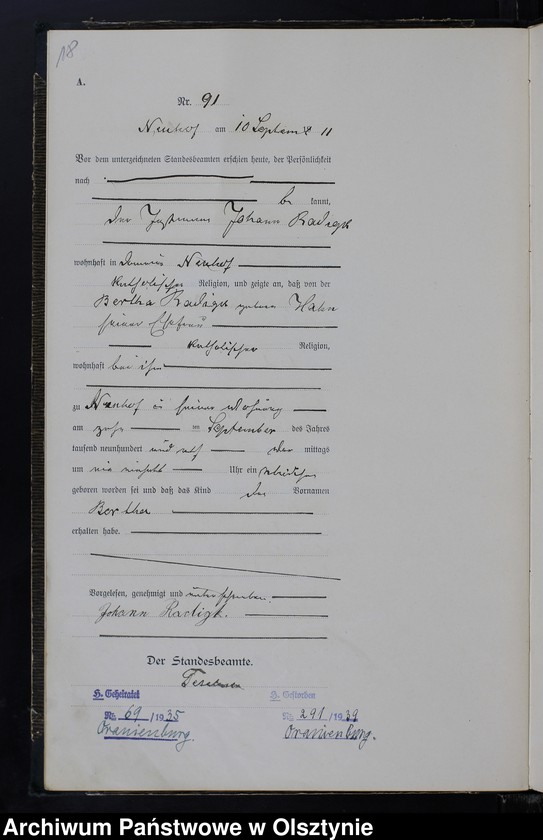 18
A.
Nr. 91
Neuhof am 10 September 11
Vor dem unterzeichneten Standesbeamten erschien heute, der Persönlichkeit
nach
be kannt,
der Instmann Johann Radigk
wohnhaft in Neuhof
katholischer Religion, und zeigte an, daß von der
Bertha Radigk geborn Hahn
seiner Ehefrau
katholischer Religion,
wohnhaft bei ihm
zu Neuhof in seiner Wohnung
am zehn ten September des Jahres
tausend neunhundert und elf mittags
um Uhr ein
geboren worden sei und daß das Kind den Vornamen
Bertha
erhalten habe.
Vorgelesen, genehmigt und unterschrieben.
Johann Radigk.
Der Standesbeamte.
H. Geheiratet H. Gestorben
Nr. 69 /1935 Nr. 291 /1939
Oranienburg. Oranienburg.
Archiwum Państwowe w Olsztynie